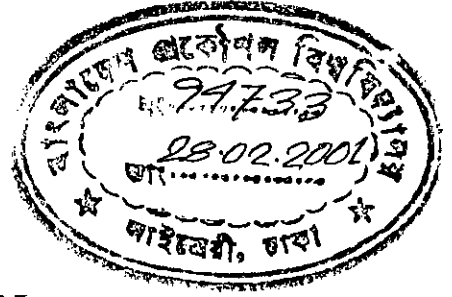 বাংলাদেশ প্রকৌশল বিশ্ববিদ্যালয়
নং 94733
তাং 28.02.2001
লাইব্রেরী, ঢাকা